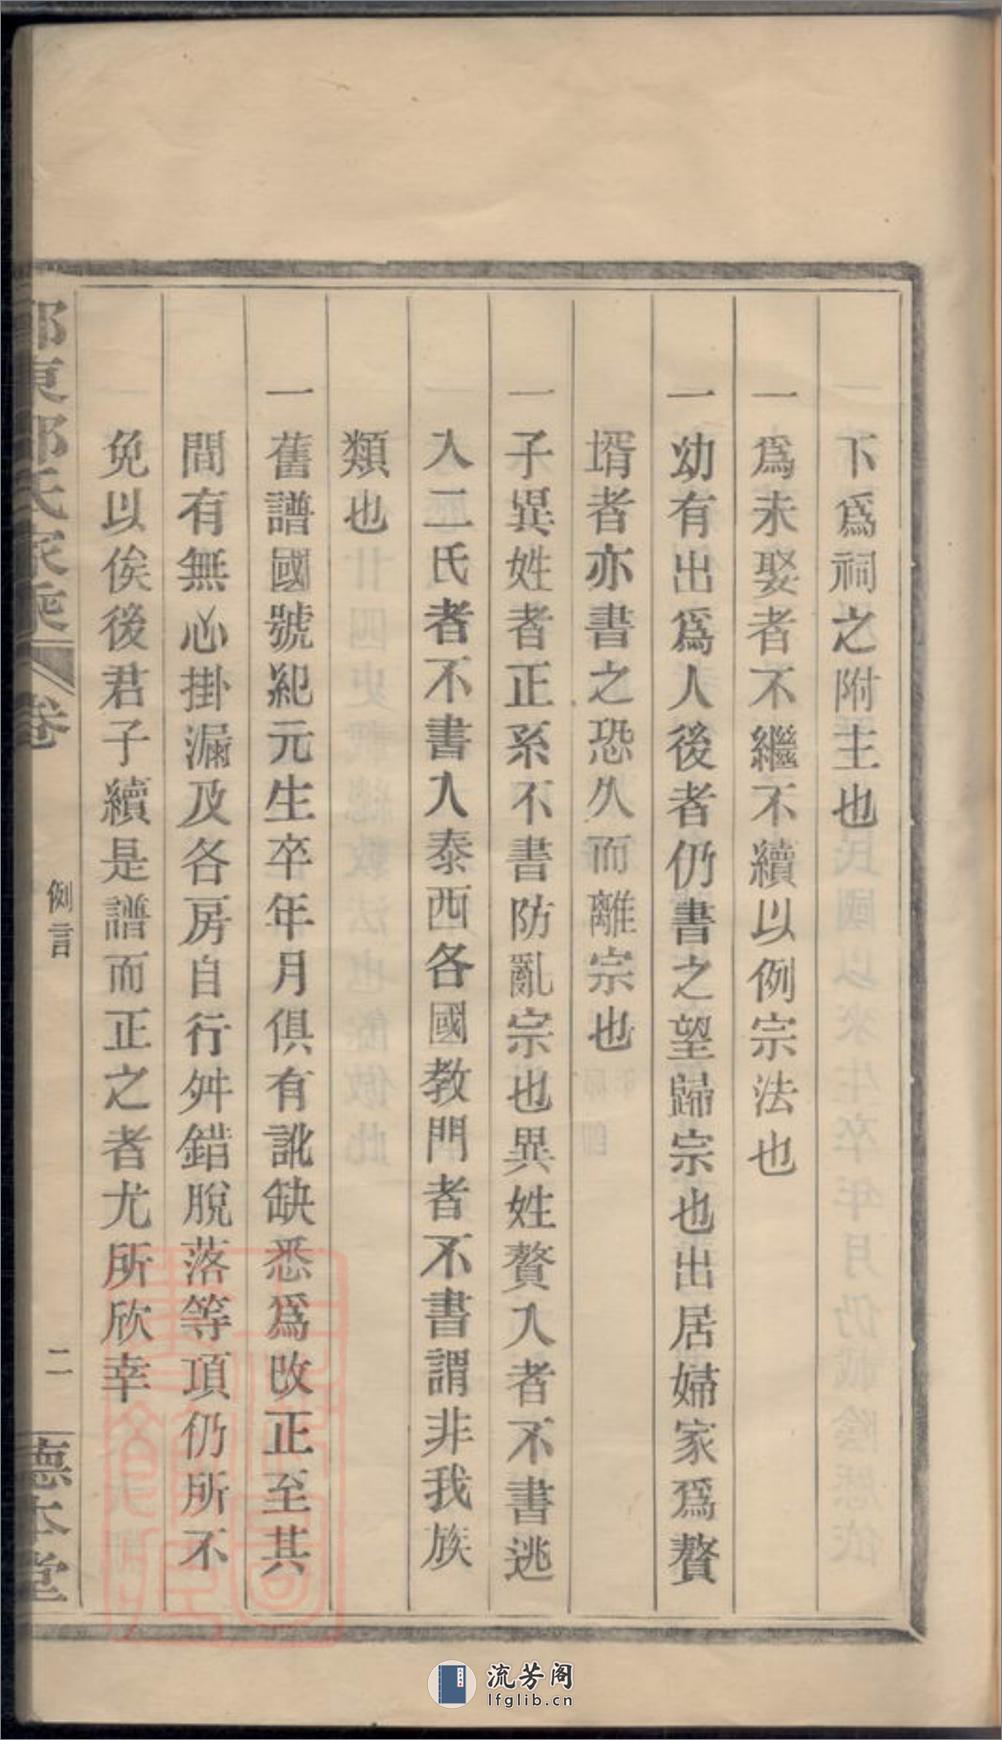 下爲祠之附主也
一爲未娶者不繼不續以例宗法也
一幼有出爲人後者仍書之望歸宗也出居婦家爲贅
壻者亦書之恐久而離宗也
一子異姓者正系不書防亂宗也異姓贅入者不書逃
入二氏者不書入泰西各國教門者不書謂非我族
類也
一舊譜國號紀元生卒年月俱有訛缺悉爲改正至其
間有無心掛漏及各房自行舛錯脫落等項仍所不
免以俟後君子續是譜而正之者尤所欣幸
氏家乘
卷
例言
二
德本堂
流芳阁
lfglib.cn